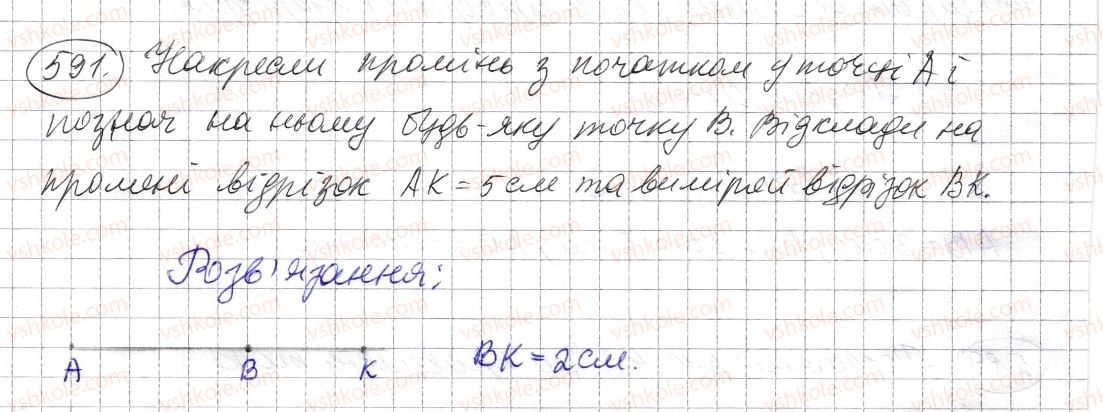 591. Накресли промінь з початком у точці А і
познач на ньому будь-яку точку В. Відклади на
промені відрізок АК = 5 см та виміряй відрізок ВК.
Розв'язання:
А В К ВК = 2 см.